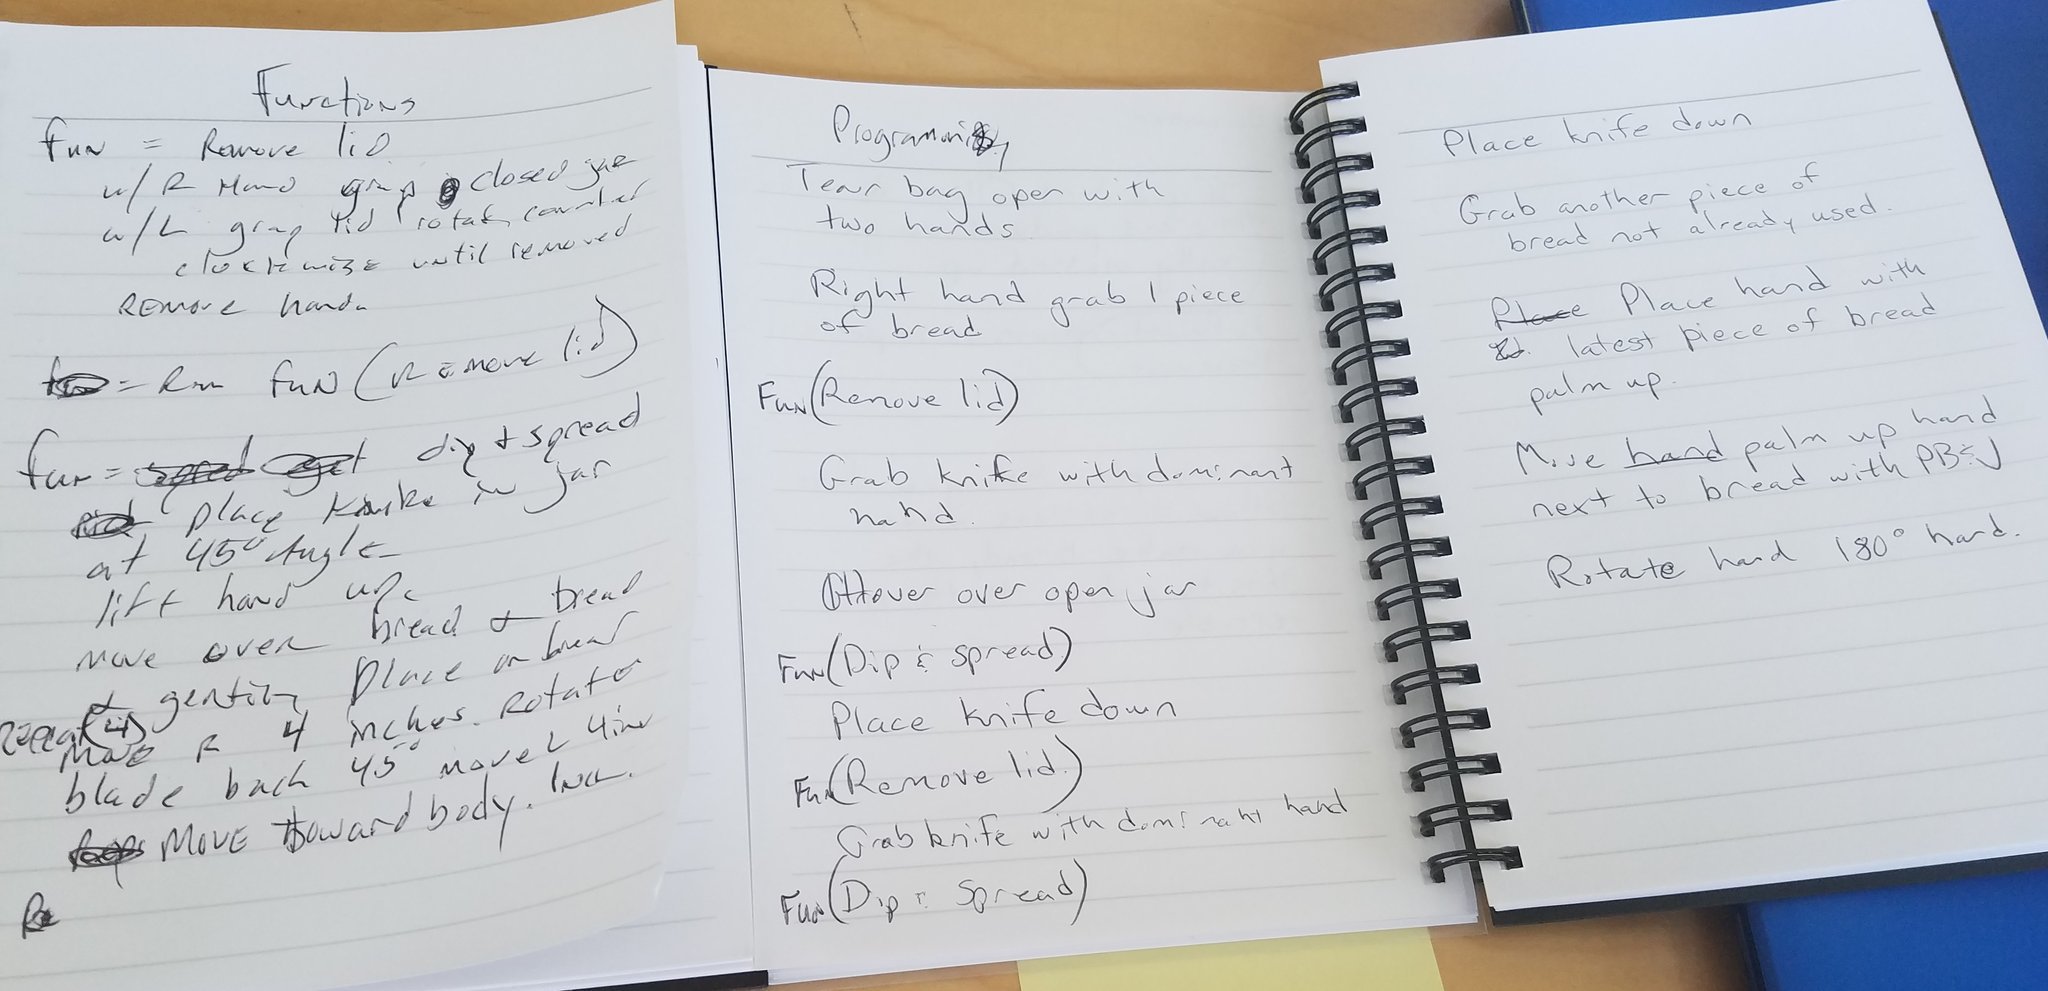 Functions
fun = Remove lid
w/ R Hand grap closed jar
w/ L grap lid rotate counter
clockwise until removed
Remove hand
= Run FUN (Remove lid)
fun = dip & spread
place knike in jar
at 45° Angle
lift hand up
move over bread & bread
& gently place on bread
Repeat (4)
Move R 4 inches. Rotate
blade back 45° move L 4 in
MOVE toward body. Inch.
Re
Programming
Tear bag open with
two hands
Right hand grab 1 piece
of bread
Fun (Remove lid)
Grab knife with dominant
hand.
Hover over open jar
Fun (Dip & spread)
Place knife down
Fun (Remove lid.)
Grab knife with dominant hand
Fun (Dip & Spread)
Place knife down
Grab another piece of
bread not already used.
Place Place hand with
latest piece of bread
palm up.
Move hand palm up hand
next to bread with PB&J
Rotate hand 180° hard.